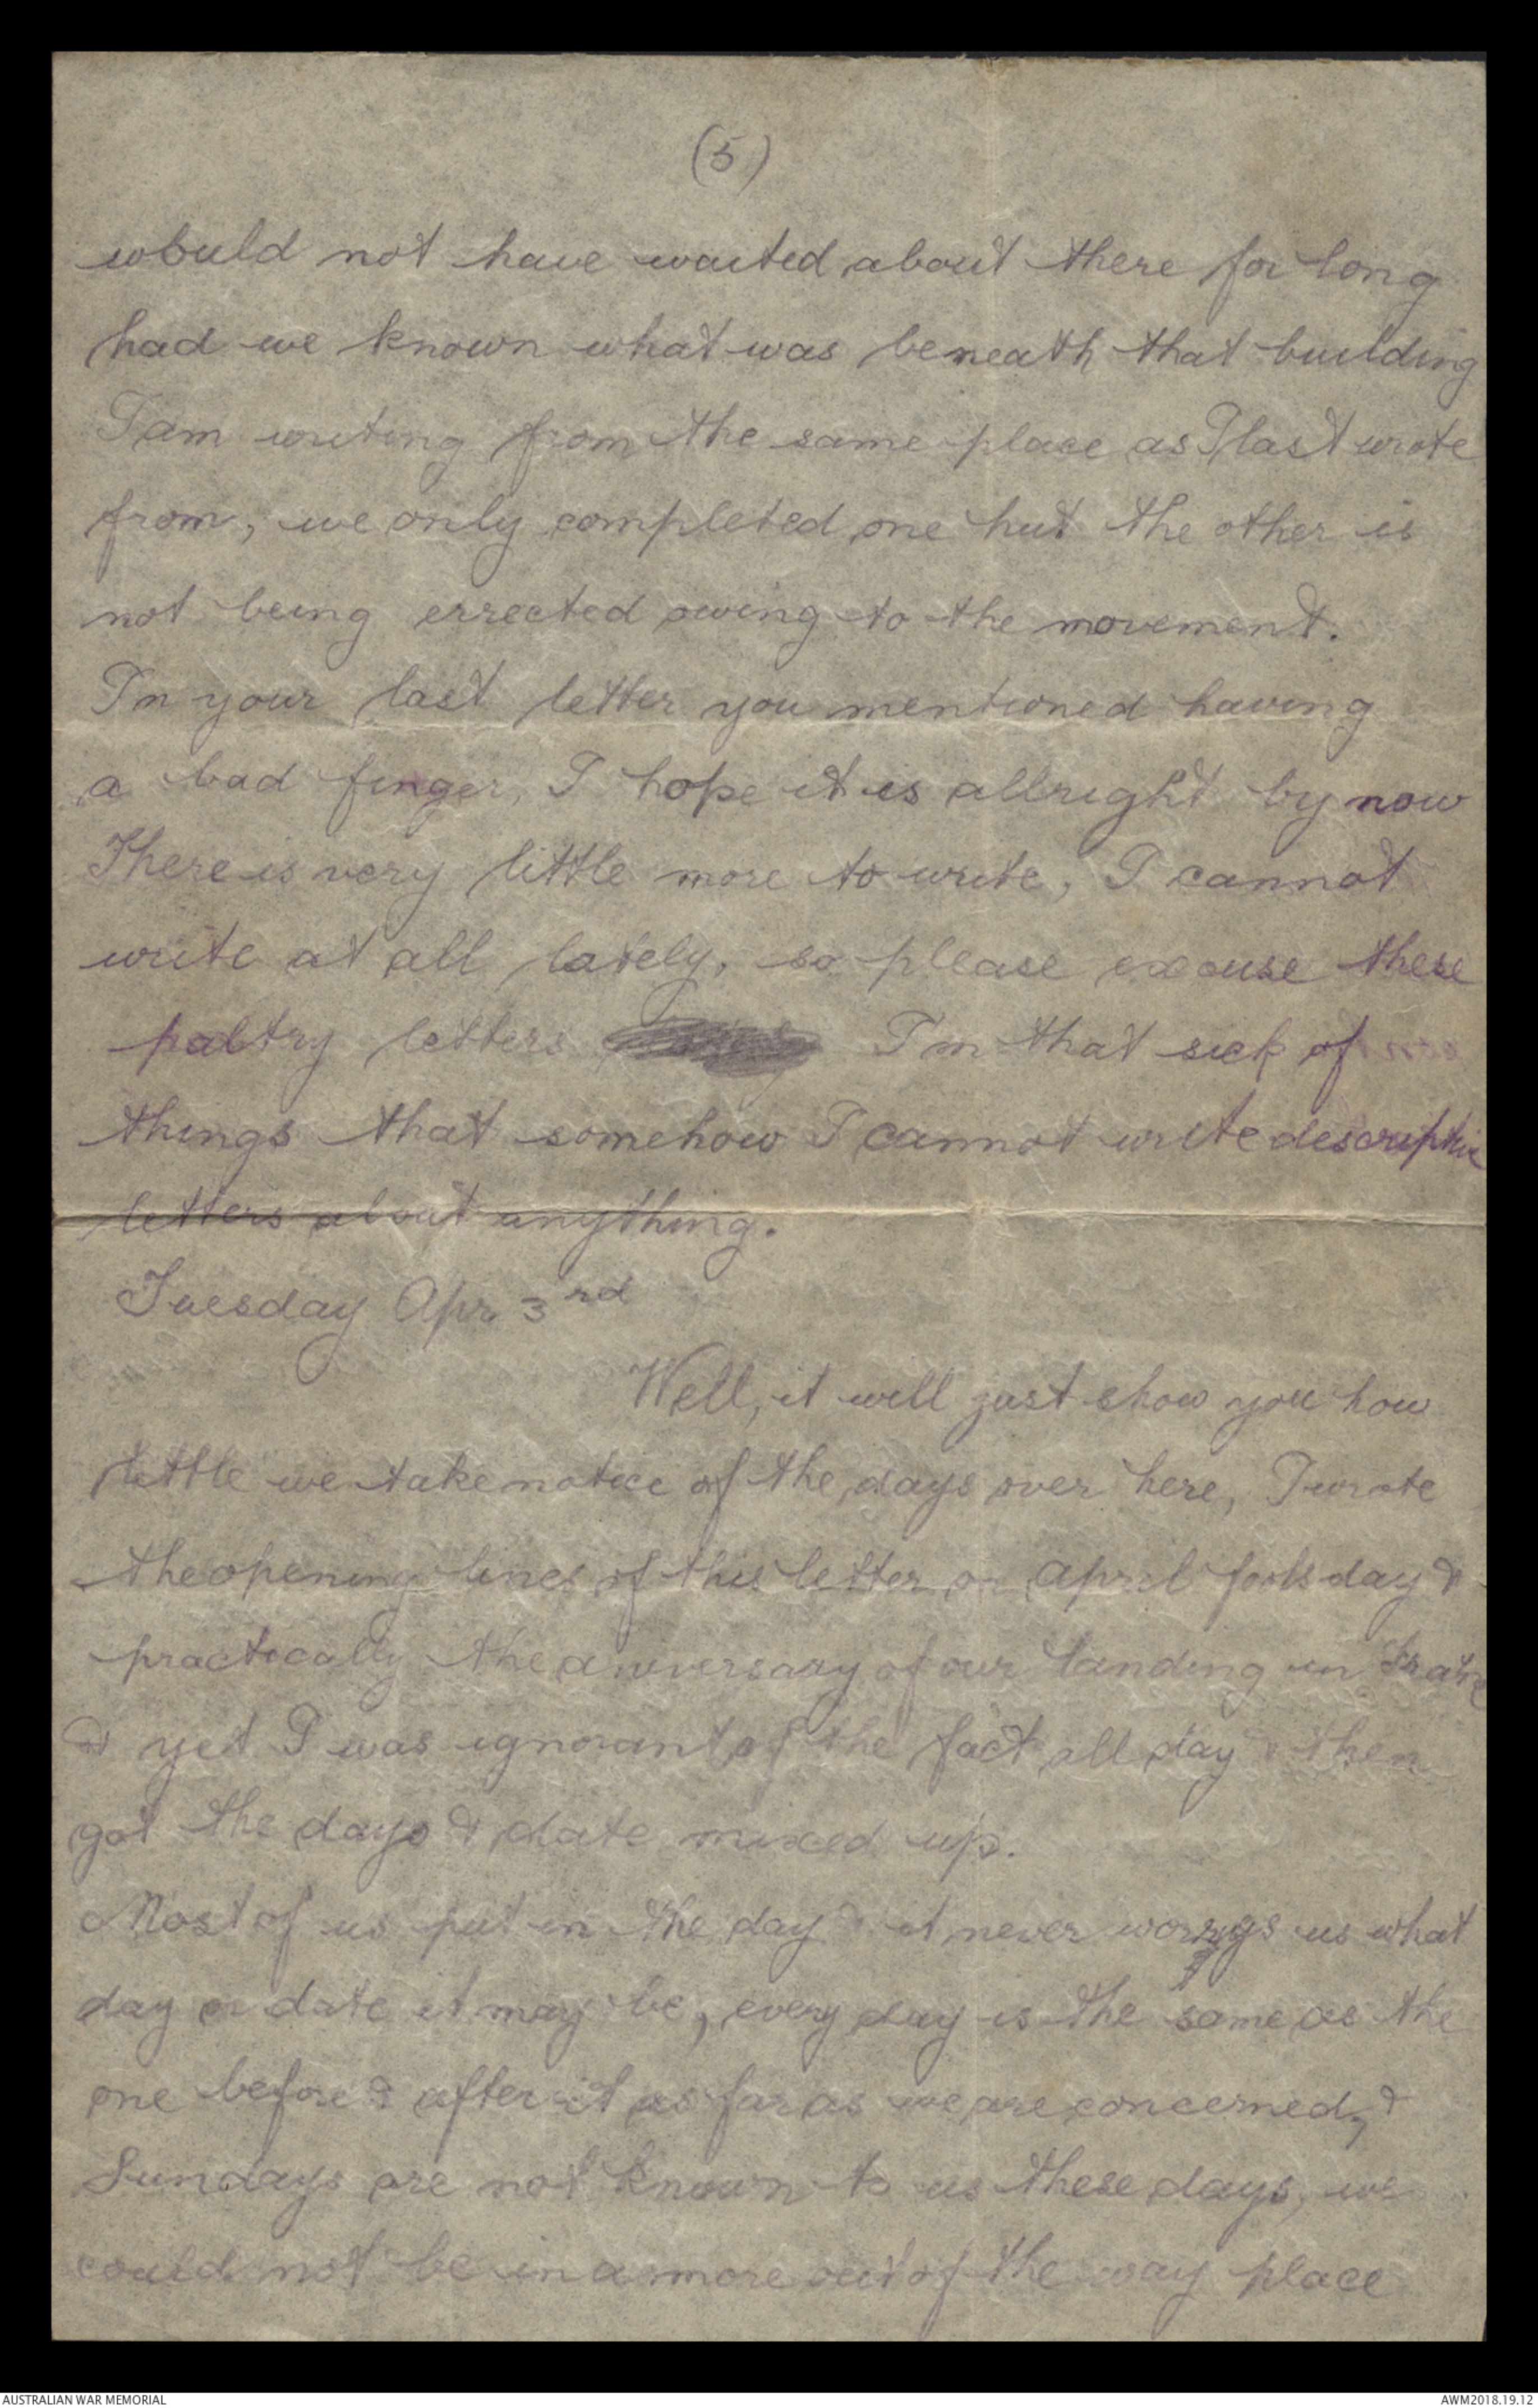 (5)
would not have waited about there for long
had we known what was beneath that building
I am writing from the same place as I last wrote
from, we only completed one hut the other is
not being errected owing to the movement.
In your last letter you mentioned having
a bad finger, I hope it is allright by now
There is very little more to write, I cannot
write at all lately, so please excuse these
paltry letters I'm that sick of
things that somehow I cannot write descriptive
letters about anything.
Tuesday Apr. 3rd
Well, it will just show you how
little we take notice of the days over here, I wrote
the opening lines of this letter on April fools day &
practically the aniversary of our landing in France
& yet I was ignorant of the fact all day & then
got the days & date mixed up.
Most of us put in the day & it never worrys us what
day or date it may be, every day is the same as the
one before & after it as far as we are concerned, &
Sundays are not known to us these days, we
could not be in a more out of the way place
AUSTRALIAN WAR MEMORIAL
AWM2018.19.12